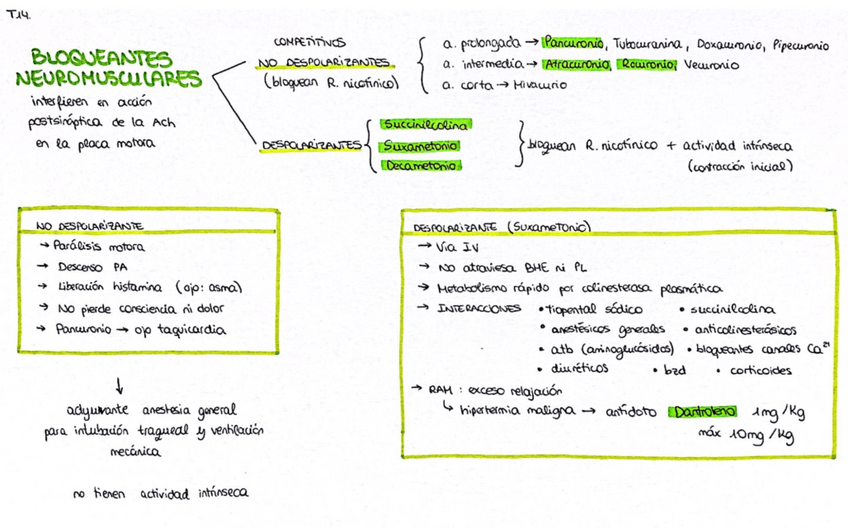 T14.
BLOQUEANTES
NEUROMUSCULARES
interfieren en acción
postsináptica de la Ach
en la placa motora
COMPETITIVOS
NO DESPOLARIZANTES
(bloquean R. nicotínico)
a. prolongada → Pancuronio, Tubocuranina, Doxacuronio, Pipecuronio
a. intermedia → Atracuronio, Rocuronio, Vecuronio
a. corta → Mivacurio
DESPOLARIZANTES
Succinilcolina
Suxametonio
Decametonio
bloquean R. nicotínico + actividad intrínseca
(contracción inicial)
NO DESPOLARIZANTE
→ Parálisis motora
→ Descenso PA
→ Liberación histamina (ojo: asma)
→ No pierde consciencia ni dolor
→ Pancuronio → ojo taquicardia
↓
adyuvante anestesia general
para intubación traqueal y ventilación
mecánica
no tienen actividad intrínseca
DESPOLARIZANTE (Suxametonio)
→ Vía IV
→ No atraviesa BHE ni PL
→ Metabolismo rápido por colinesterasa plasmática
→ INTERACCIONES • tiopental sódico • succinilcolina
• anestésicos generales • anticolinesterásicos
• atb (aminoglucósidos) • bloqueantes canales Ca²⁺
• diuréticos • bzd • corticoides
→ RAM : exceso relajación
↳ hipertermia maligna → antídoto Dantroleno 1mg/Kg
máx 10mg/Kg